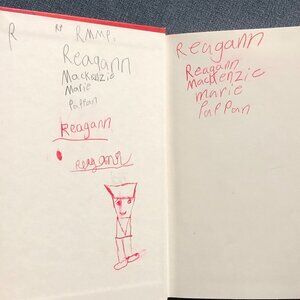 R " RMMP.
Reagann
Mackenzie
Marie
Pappan
Reagann
Reagann
Reagann
Reagann
MacKenzie
marie
Pappan